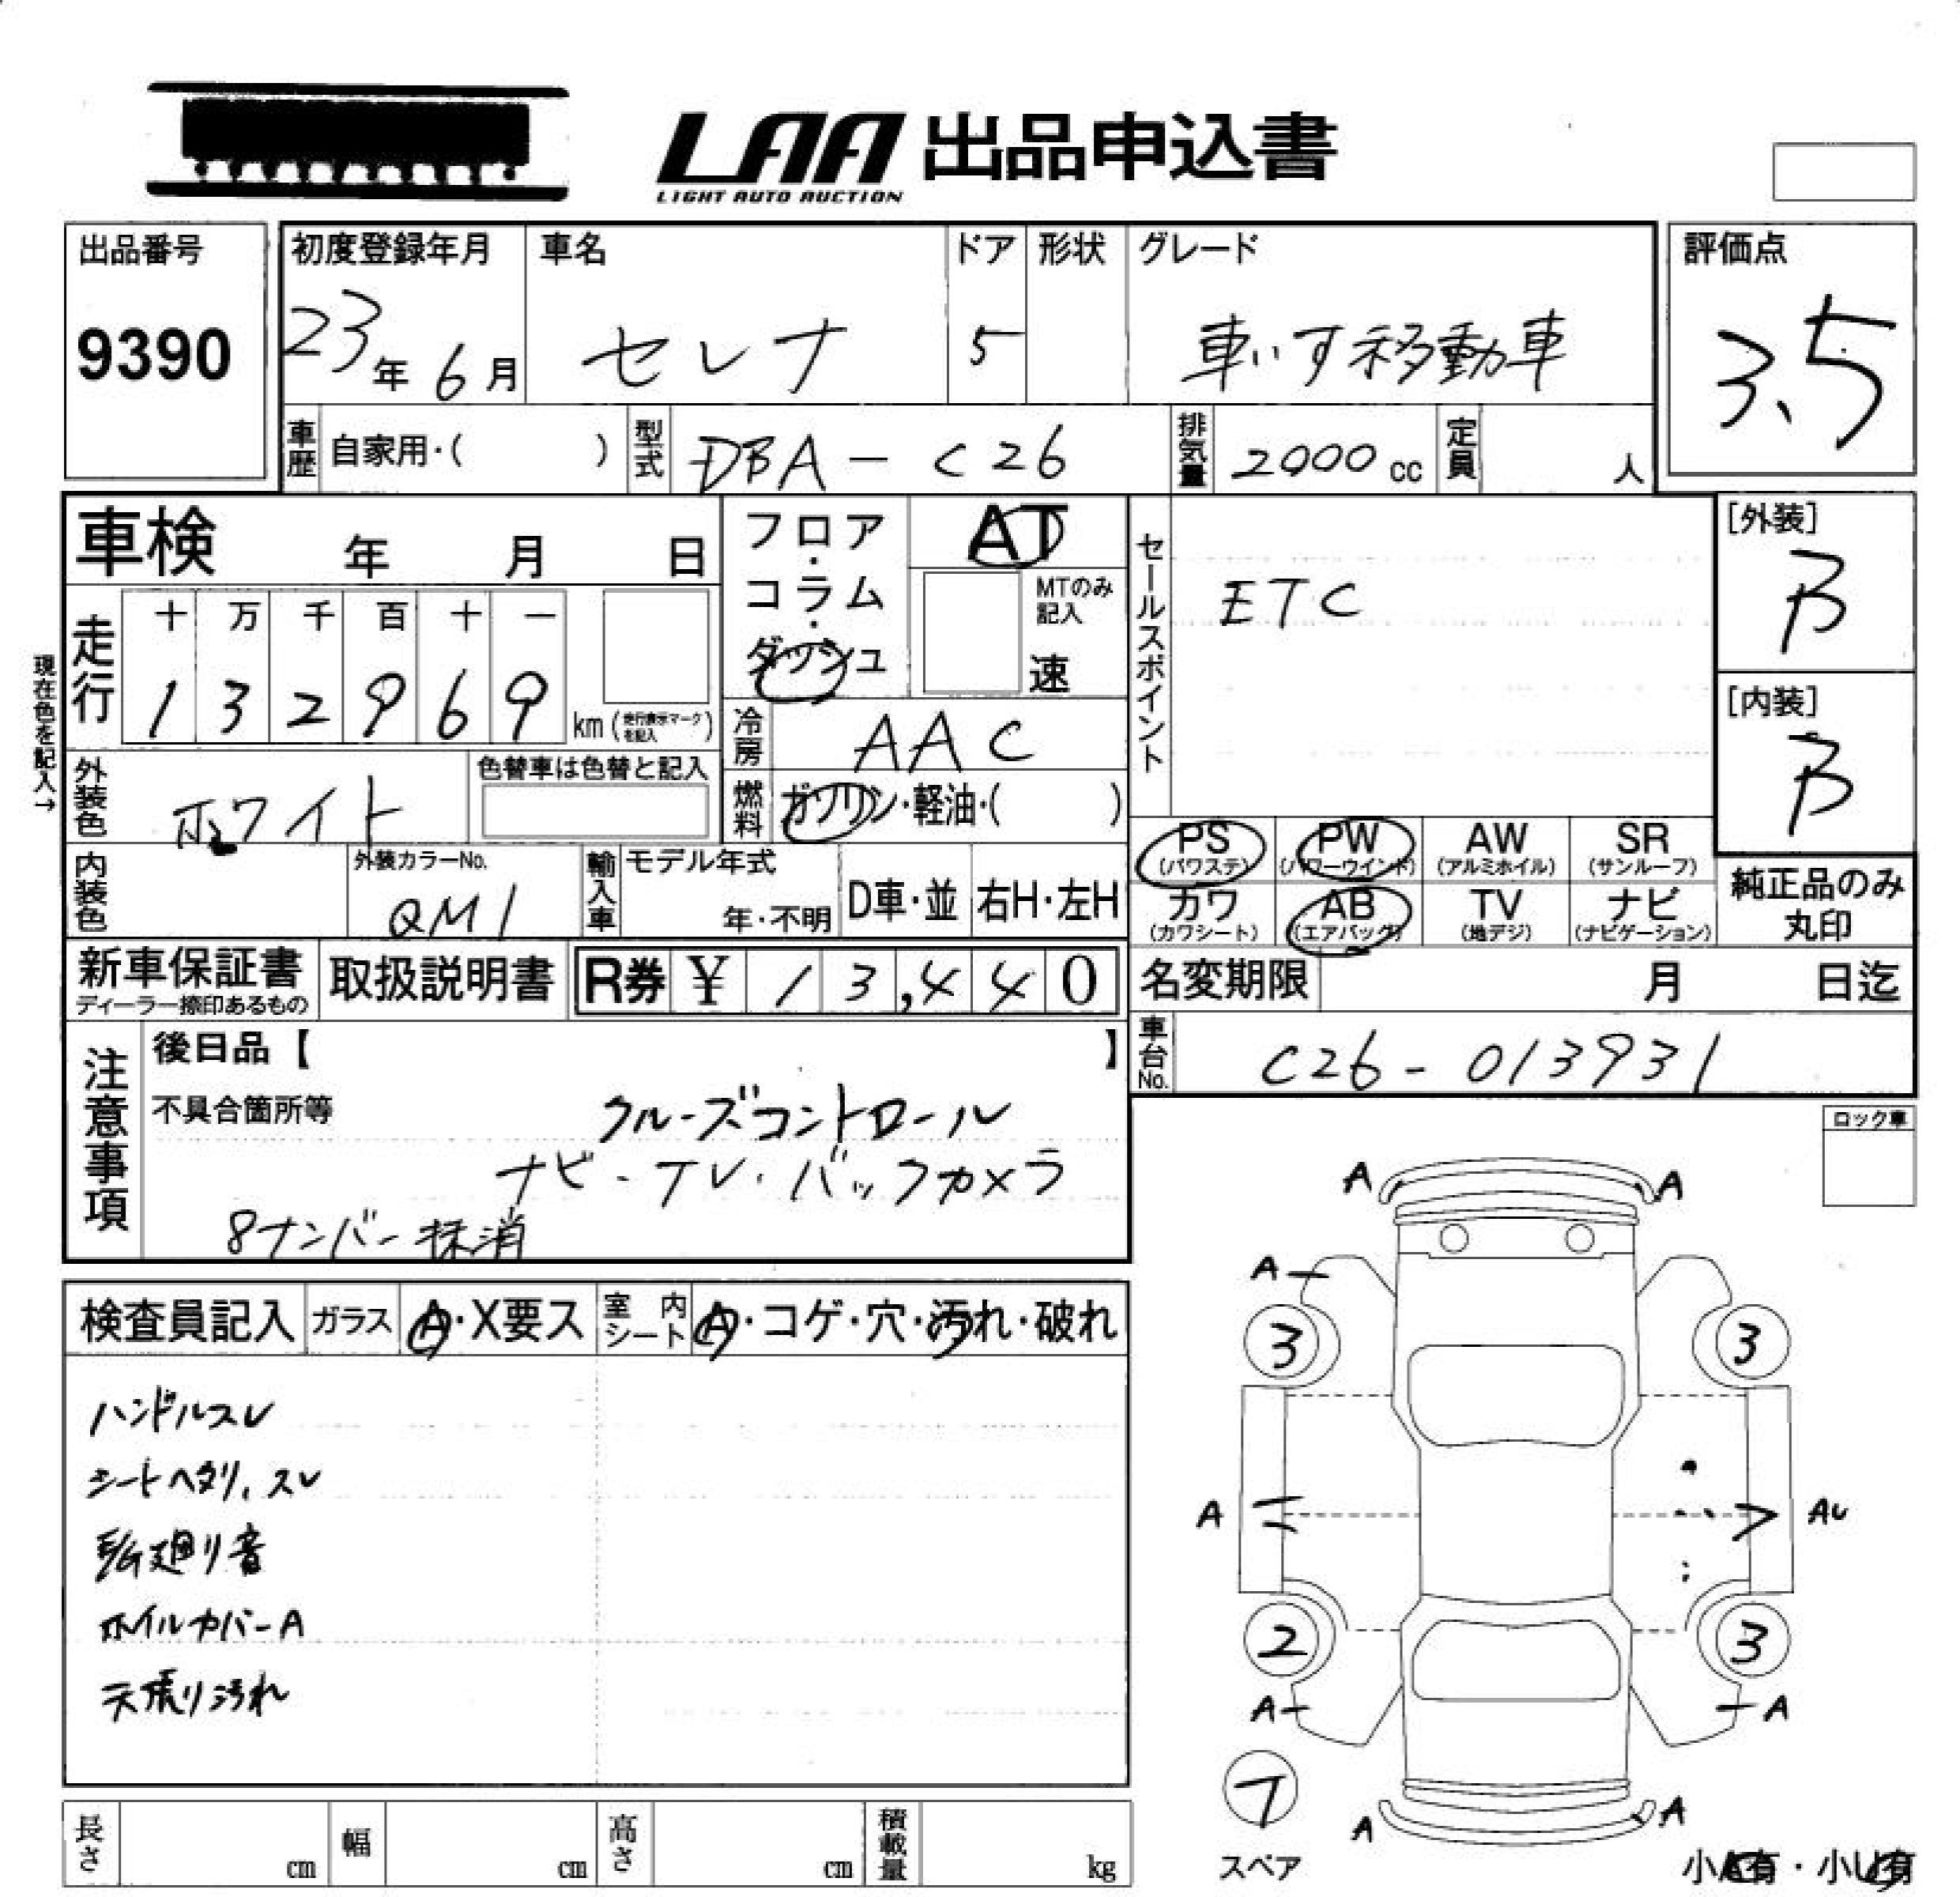 LAA 出品申込書
LIGHT AUTO AUCTION
出品番号
9390
初度登録年月 車名 ドア 形状 グレード
23年 6月 セレナ 5 車いす移動車
評価点
3.5
車歴 自家用・( ) 型式 DBA-C26 排気量 2000cc 定員 人
車検 年 月 日
フロア・コラム・ダッシュ
AT
MTのみ記入
速
セールスポイント
ETC
[外装]
B
[内装]
B
現在色を記入→
走行
十 万 千 百 十 一
1 3 2 9 6 9 km (走行表示マークを記入)
冷房 AAC
外装色 ホワイト
色替車は色替と記入
燃料 ガソリン・軽油・( )
内装色
外装カラーNo.
QM1
輸入車 モデル年式
年・不明
D車・並 右H・左H
PS (パワステ) PW (パワーウインド) AW (アルミホイル) SR (サンルーフ)
カワ (カワシート) AB (エアバッグ) TV (地デジ) ナビ (ナビゲーション)
純正品のみ
丸印
新車保証書
ディーラー捺印あるもの
取扱説明書 R券 ¥ 13,440
名変期限 月 日迄
車台No. C26-013931
注意事項
後日品【 】
不具合箇所等
クルーズコントロール
ナビ・TV・バックカメラ
8ナンバー抹消
ロック車
検査員記入 ガラス A・X要ス 室内シート A・コゲ・穴・汚れ・破れ
ハンドルスレ
シートヘタリ、スレ
転廻り音
ホイルカバーA
天張り汚れ
A A
A
3 3
A AU
2 3
A A
A A
スペア
小A有・小U有
長さ cm 幅 cm 高さ cm 積載量 kg